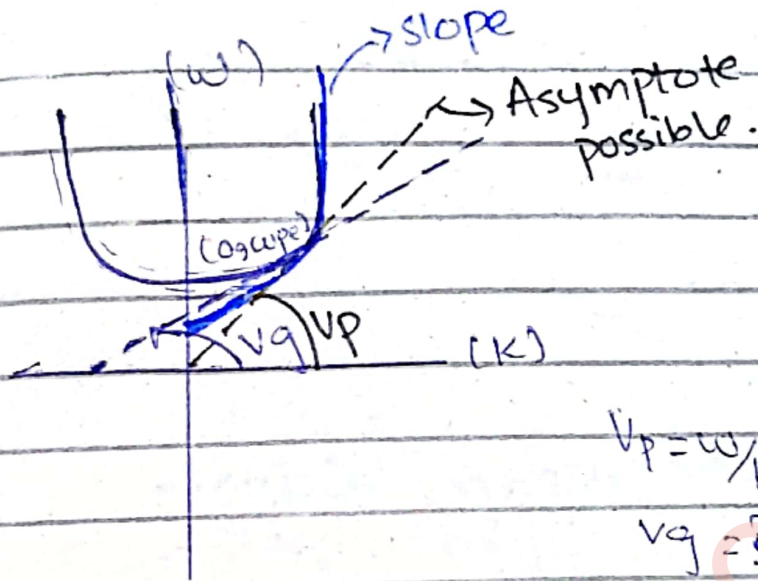 slope
(ω)
Asymptote
possible.
Vg
Vp
(K)
Vp = ω/
Vg =